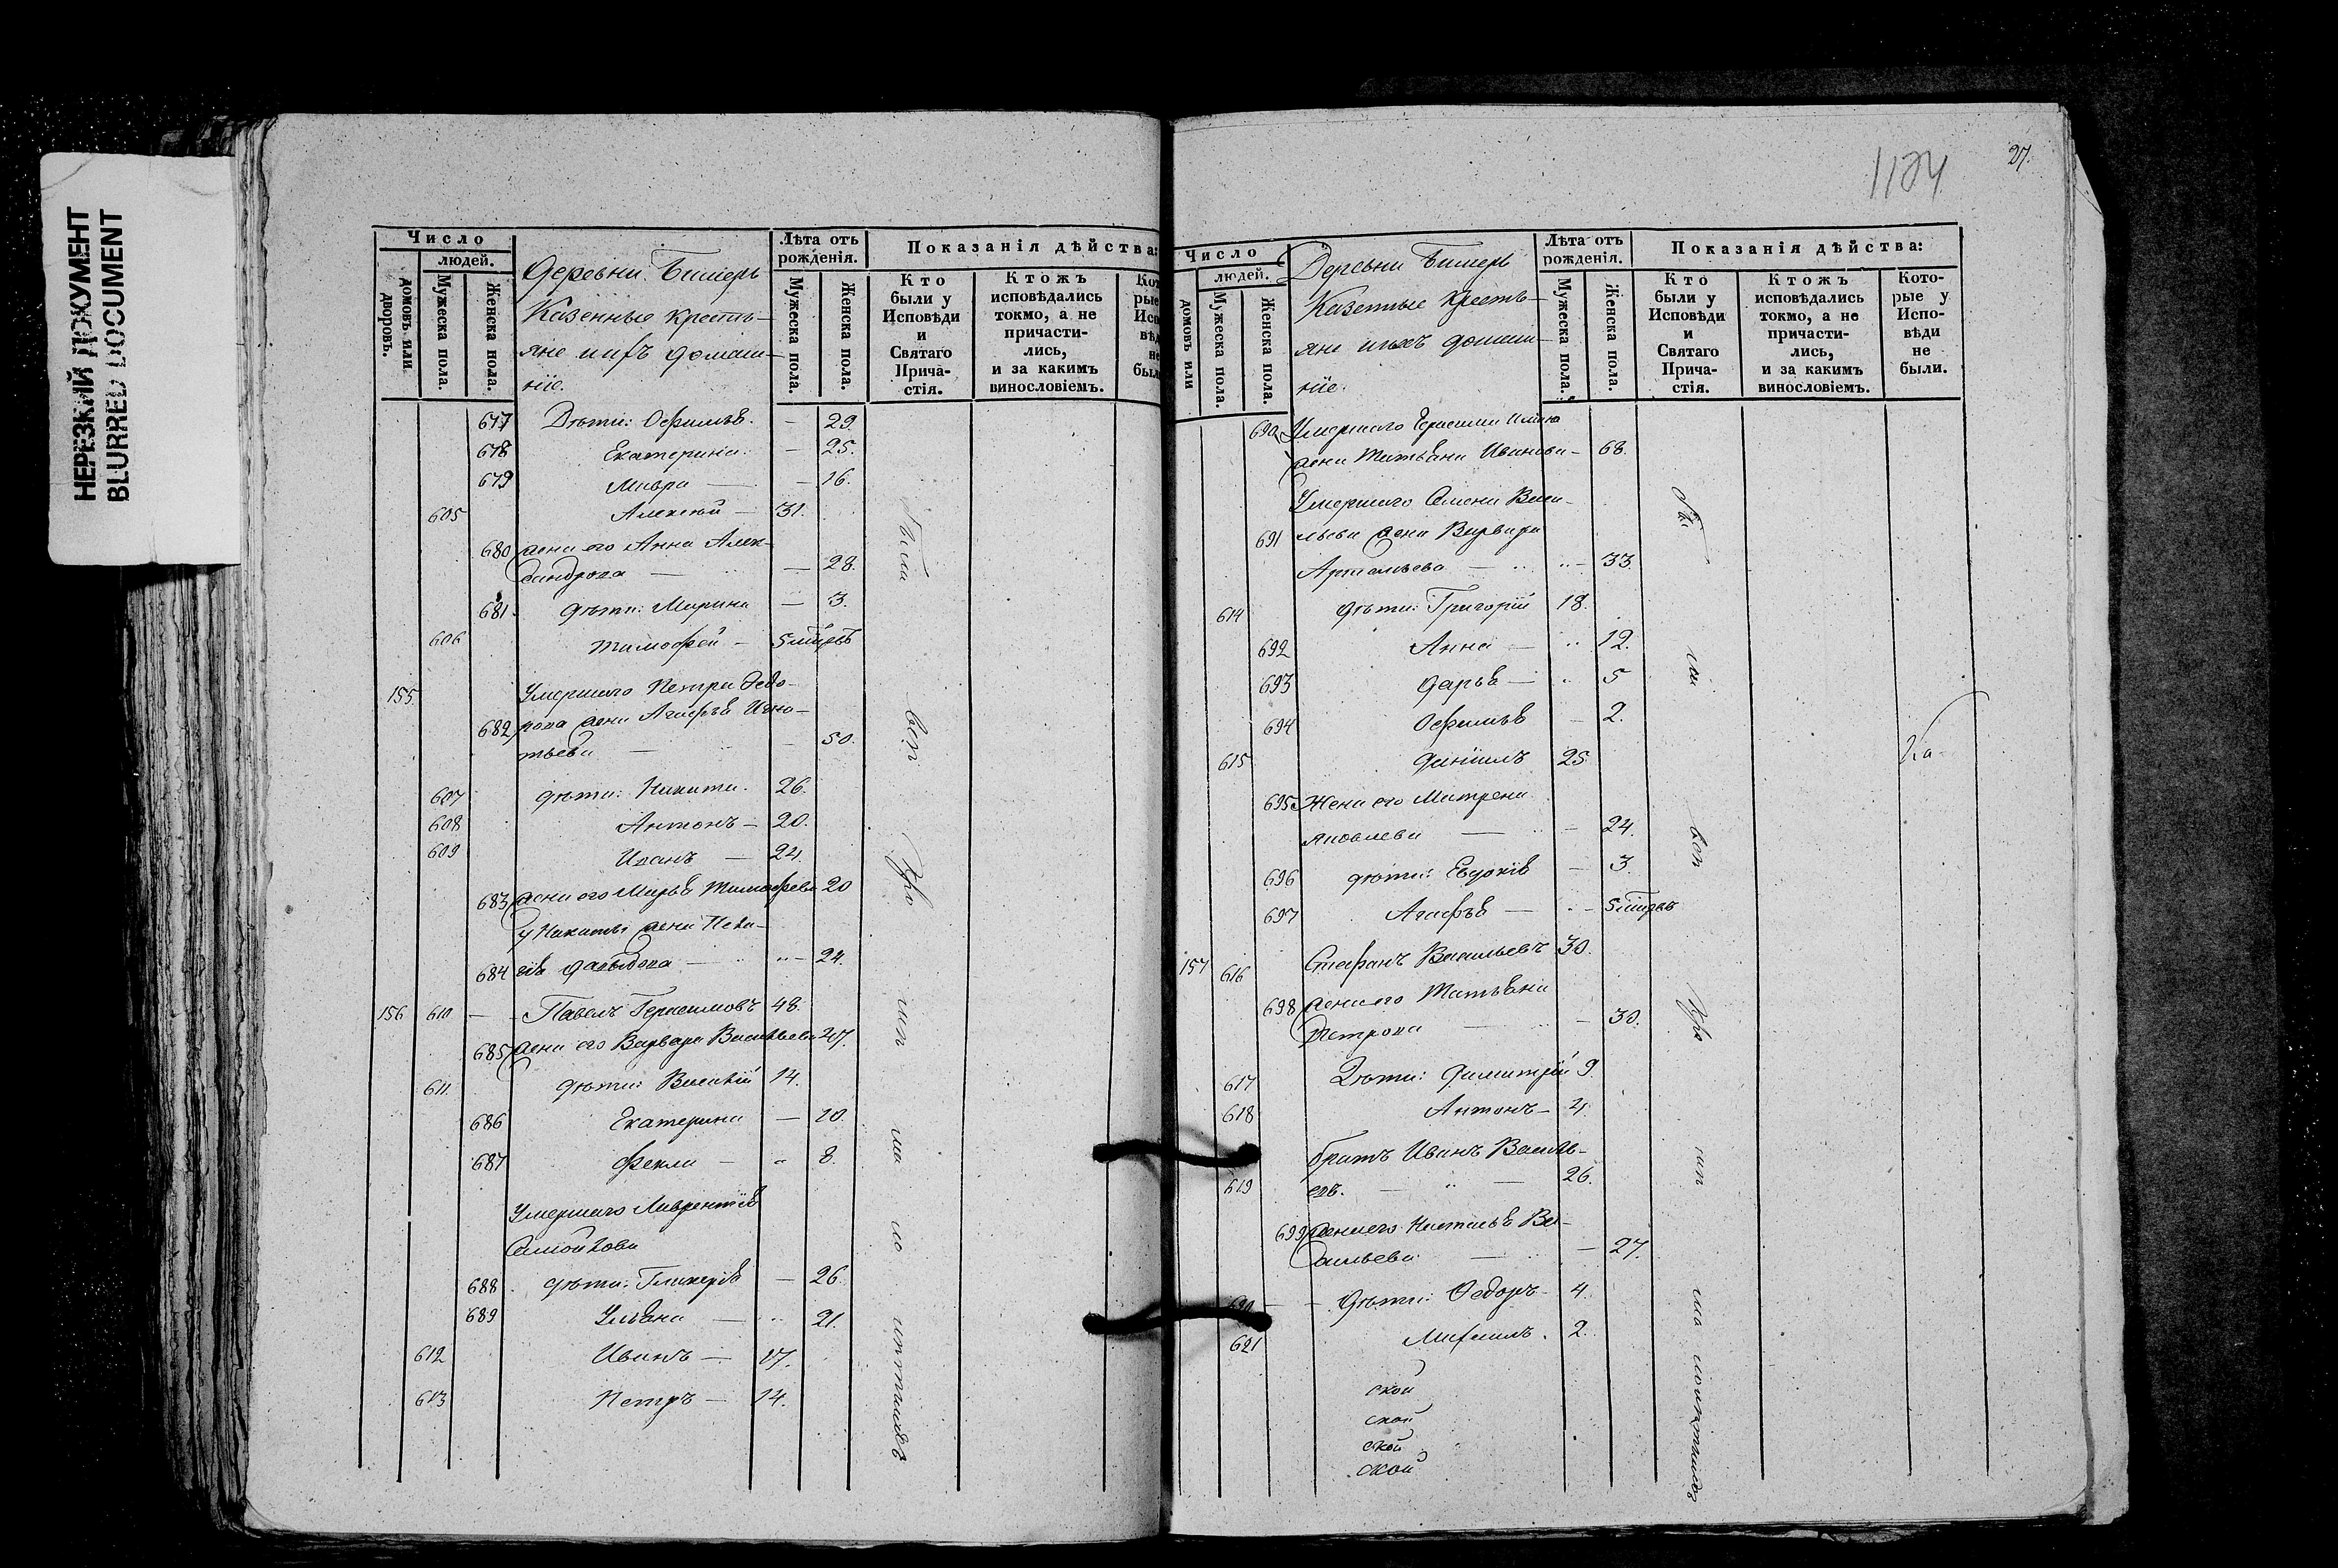 НЕРЕЗКИЙ ДОКУМЕНТ
BLURRED DOCUMENT
Число
людей.
домовъ или дворовъ.
Мужеска пола.
Женска пола.
Деревни Бимерь
Казенные кресть-
яне ихъ домаш-
ніе.
Лѣта отъ рожденія.
Мужеска пола.
Женска пола.
Показанія дѣйства:
Кто были у Исповѣди и Святаго Причастія.
Ктожъ исповѣдались токмо, а не причастились, и за какимъ винословіемъ.
677 Дѣти: Ѳефимья. — 29.
678 Екатерина. — 25.
679 Мавра — — 16.
605 Алексѣй — 31.
680 жена его Анна Алек-
сандрова — — 28.
681 дѣти: Марина — 3.
606 Тимофей — 5 мѣс.
155 Умершаго Петра Ѳедо-
682 рова жена Агафья Игна-
тьева — — 50.
607 дѣти: Никита. 26.
608 Антонъ — 20.
609 Иванъ — 24.
683 жена его Марья Тимофеева 20
у Никиты жена Пела-
684 гія Давыдова — — 24.
156 610 — Павелъ Герасимовъ 48.
685 жена его Варвара Васильева 47.
611 дѣти: Василій 14.
686 Екатерина — 10.
687 Фекла — 8.
Умершаго Лаврентія
Самойлова
688 дѣти: Гликерія — 26.
689 Ульяна — 21.
612 Иванъ — 17.
613 Петръ — 14.
1124
27.
Число
людей.
домовъ или
Мужеска пола.
Женска пола.
Деревни Бимерь
Казенные кресть-
яне ихъ домаш-
ніе.
Лѣта отъ рожденія.
Мужеска пола.
Женска пола.
Показанія дѣйства:
Кто были у Исповѣди и Святаго Причастія.
Ктожъ исповѣдались токмо, а не причастились, и за какимъ винословіемъ.
Которые у Исповѣди не были.
690 Умершаго Герасима
жена Татьяна Иванова — 68.
Умершаго Семена Васи-
691 льева жена Варвара
Артемьева — — 33.
614 дѣти: Григорій 18.
692 Анна — 12.
693 Дарья — 5
694 Ѳефимья — 2.
615 Даніилъ 25
695 Жена его Матрена
Яковлева — — 24.
696 дѣти: Евдокія — 3.
697 Агафья — — 5 мѣс.
157 616 Стефанъ Васильевъ 30.
698 жена его Татьяна
Петрова — — 30.
617 Дѣти: Димитрій 9.
618 Антонъ — 4.
братъ Иванъ Василь-
619 евъ. — — 26.
699 жена его Наталья Ва-
сильева — — 27.
620 — дѣти: Ѳедоръ — 4.
621 Михаилъ. 2.
ской
ской
ской
ской